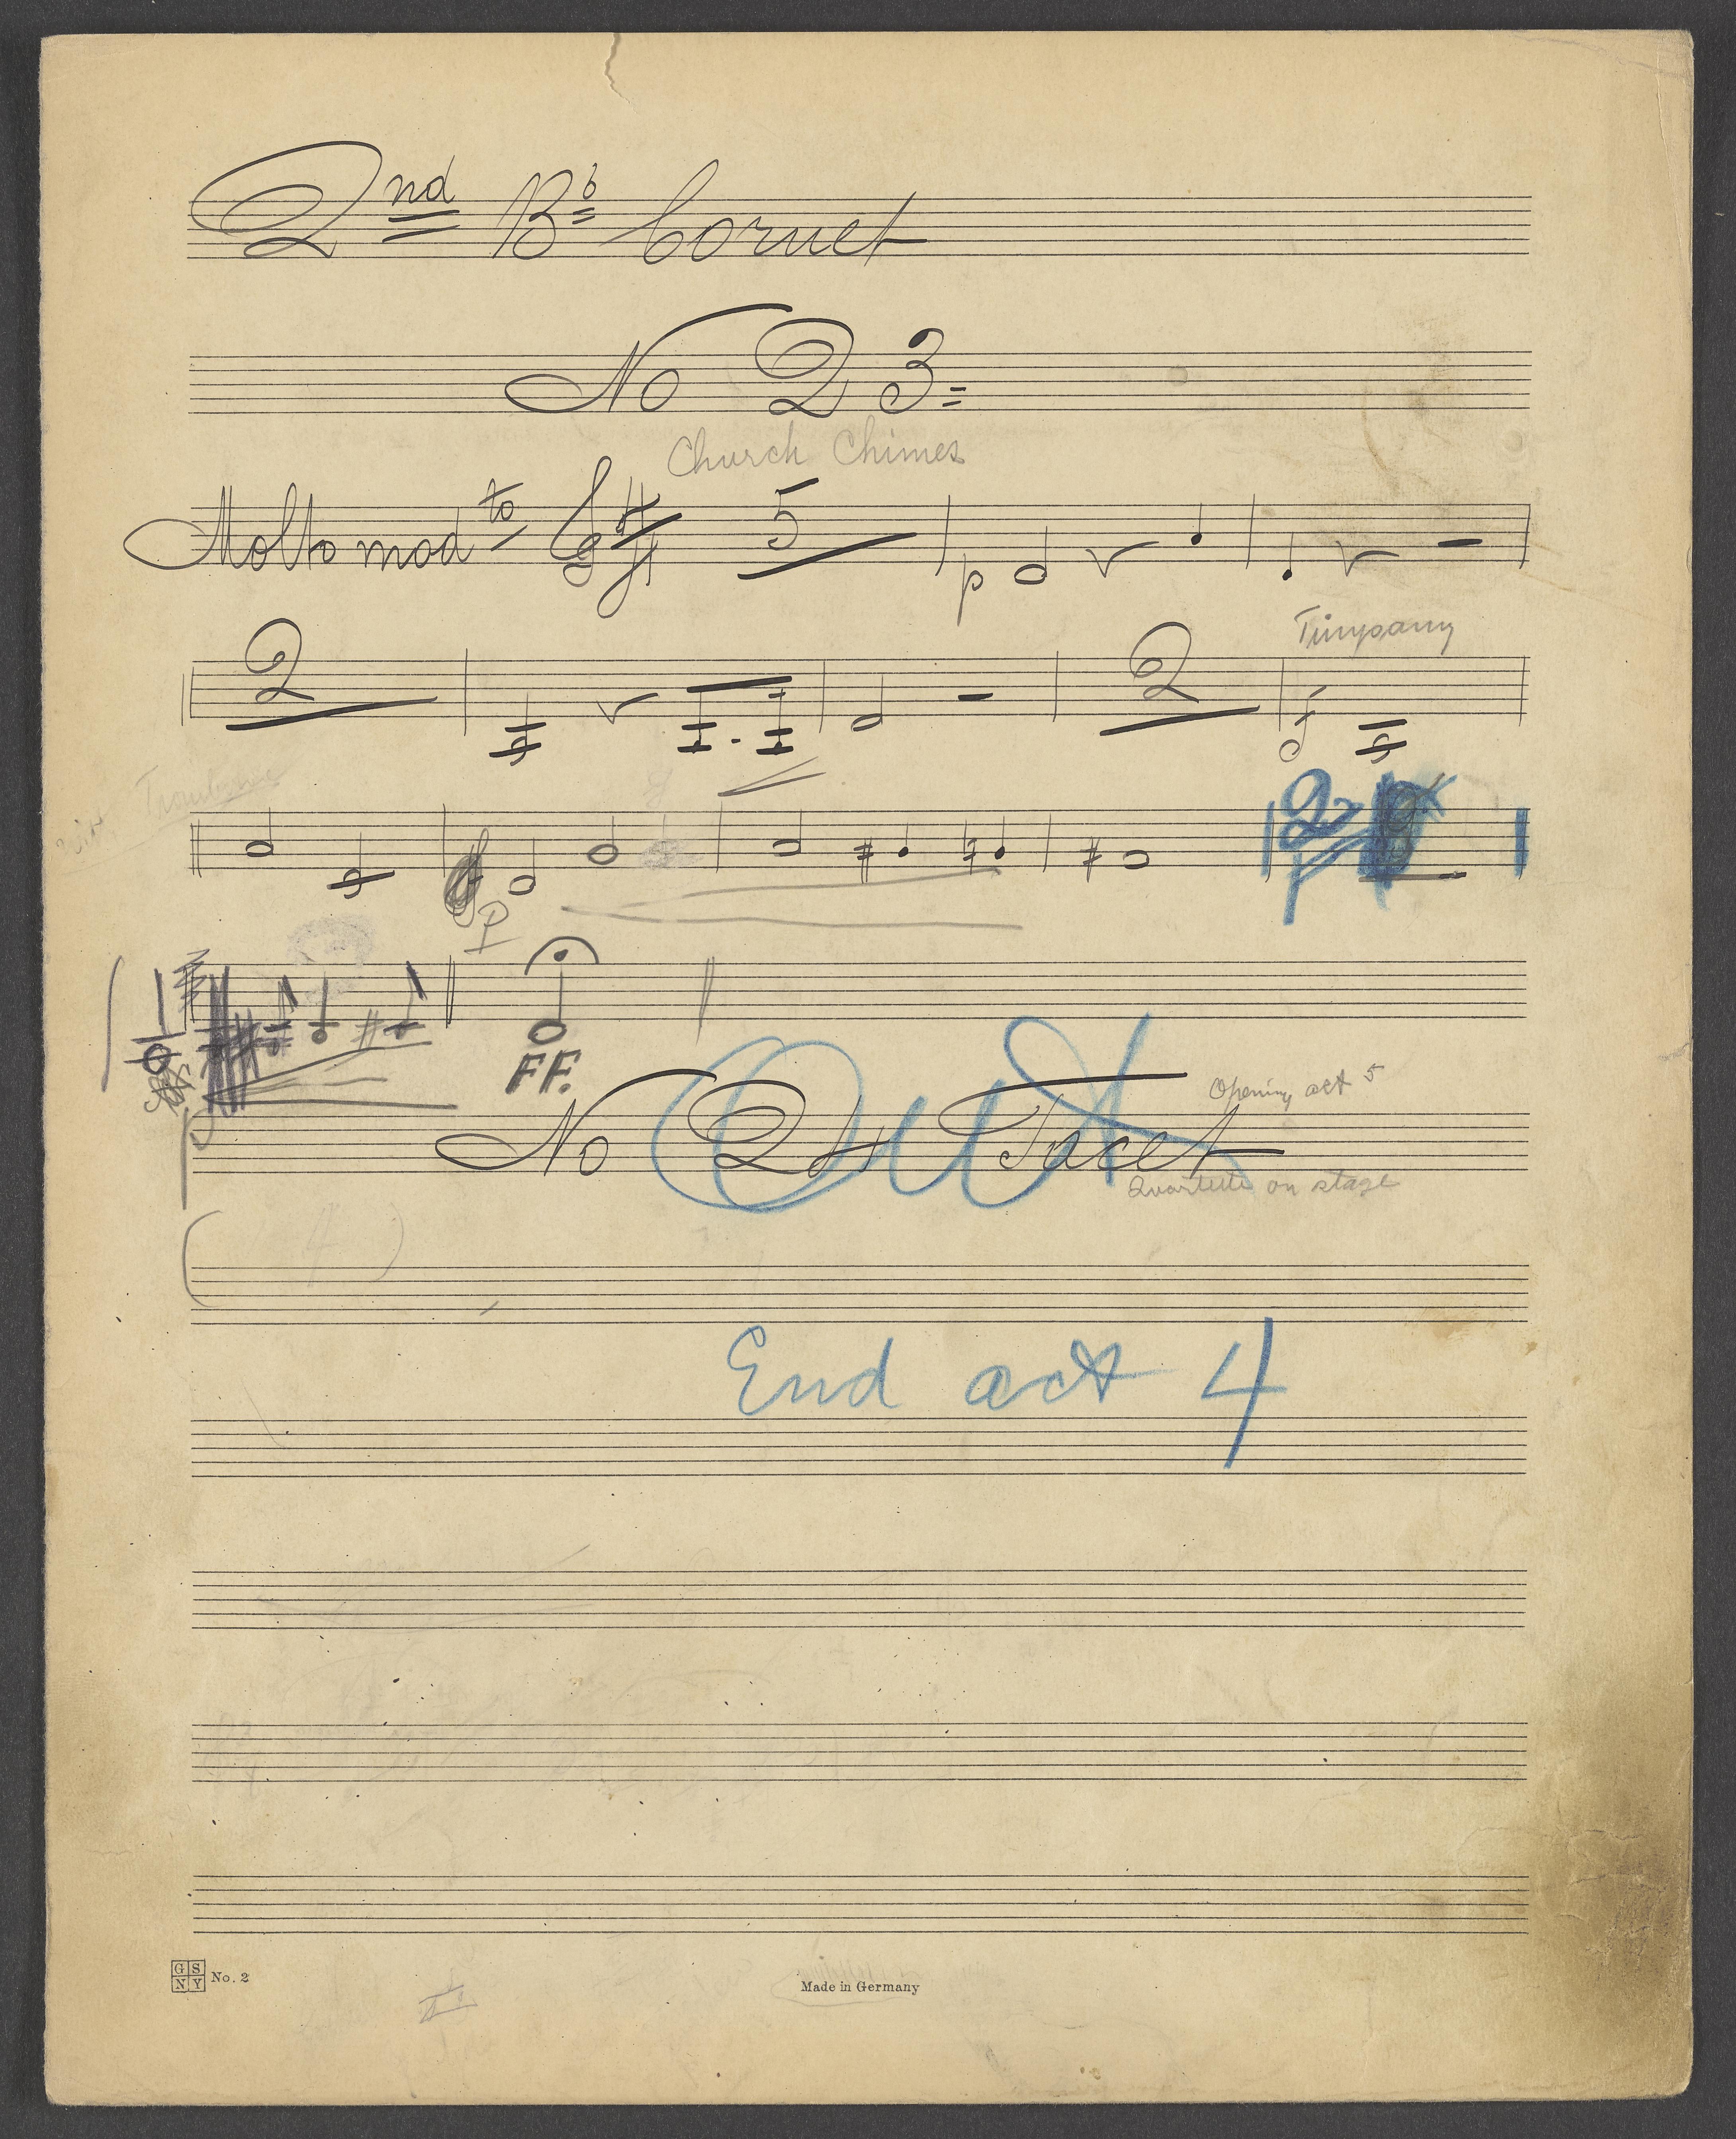 2nd B♭ Cornet
No 23
Church Chimes
Molto modto 5
p
Timpany
2 2
f
Trombone
2
P
FF.
p
Out
Opening act 5
No 24 Tacet
Quartette on stage
( 4 )
End act 4
GS
NY No. 2
Made in Germany